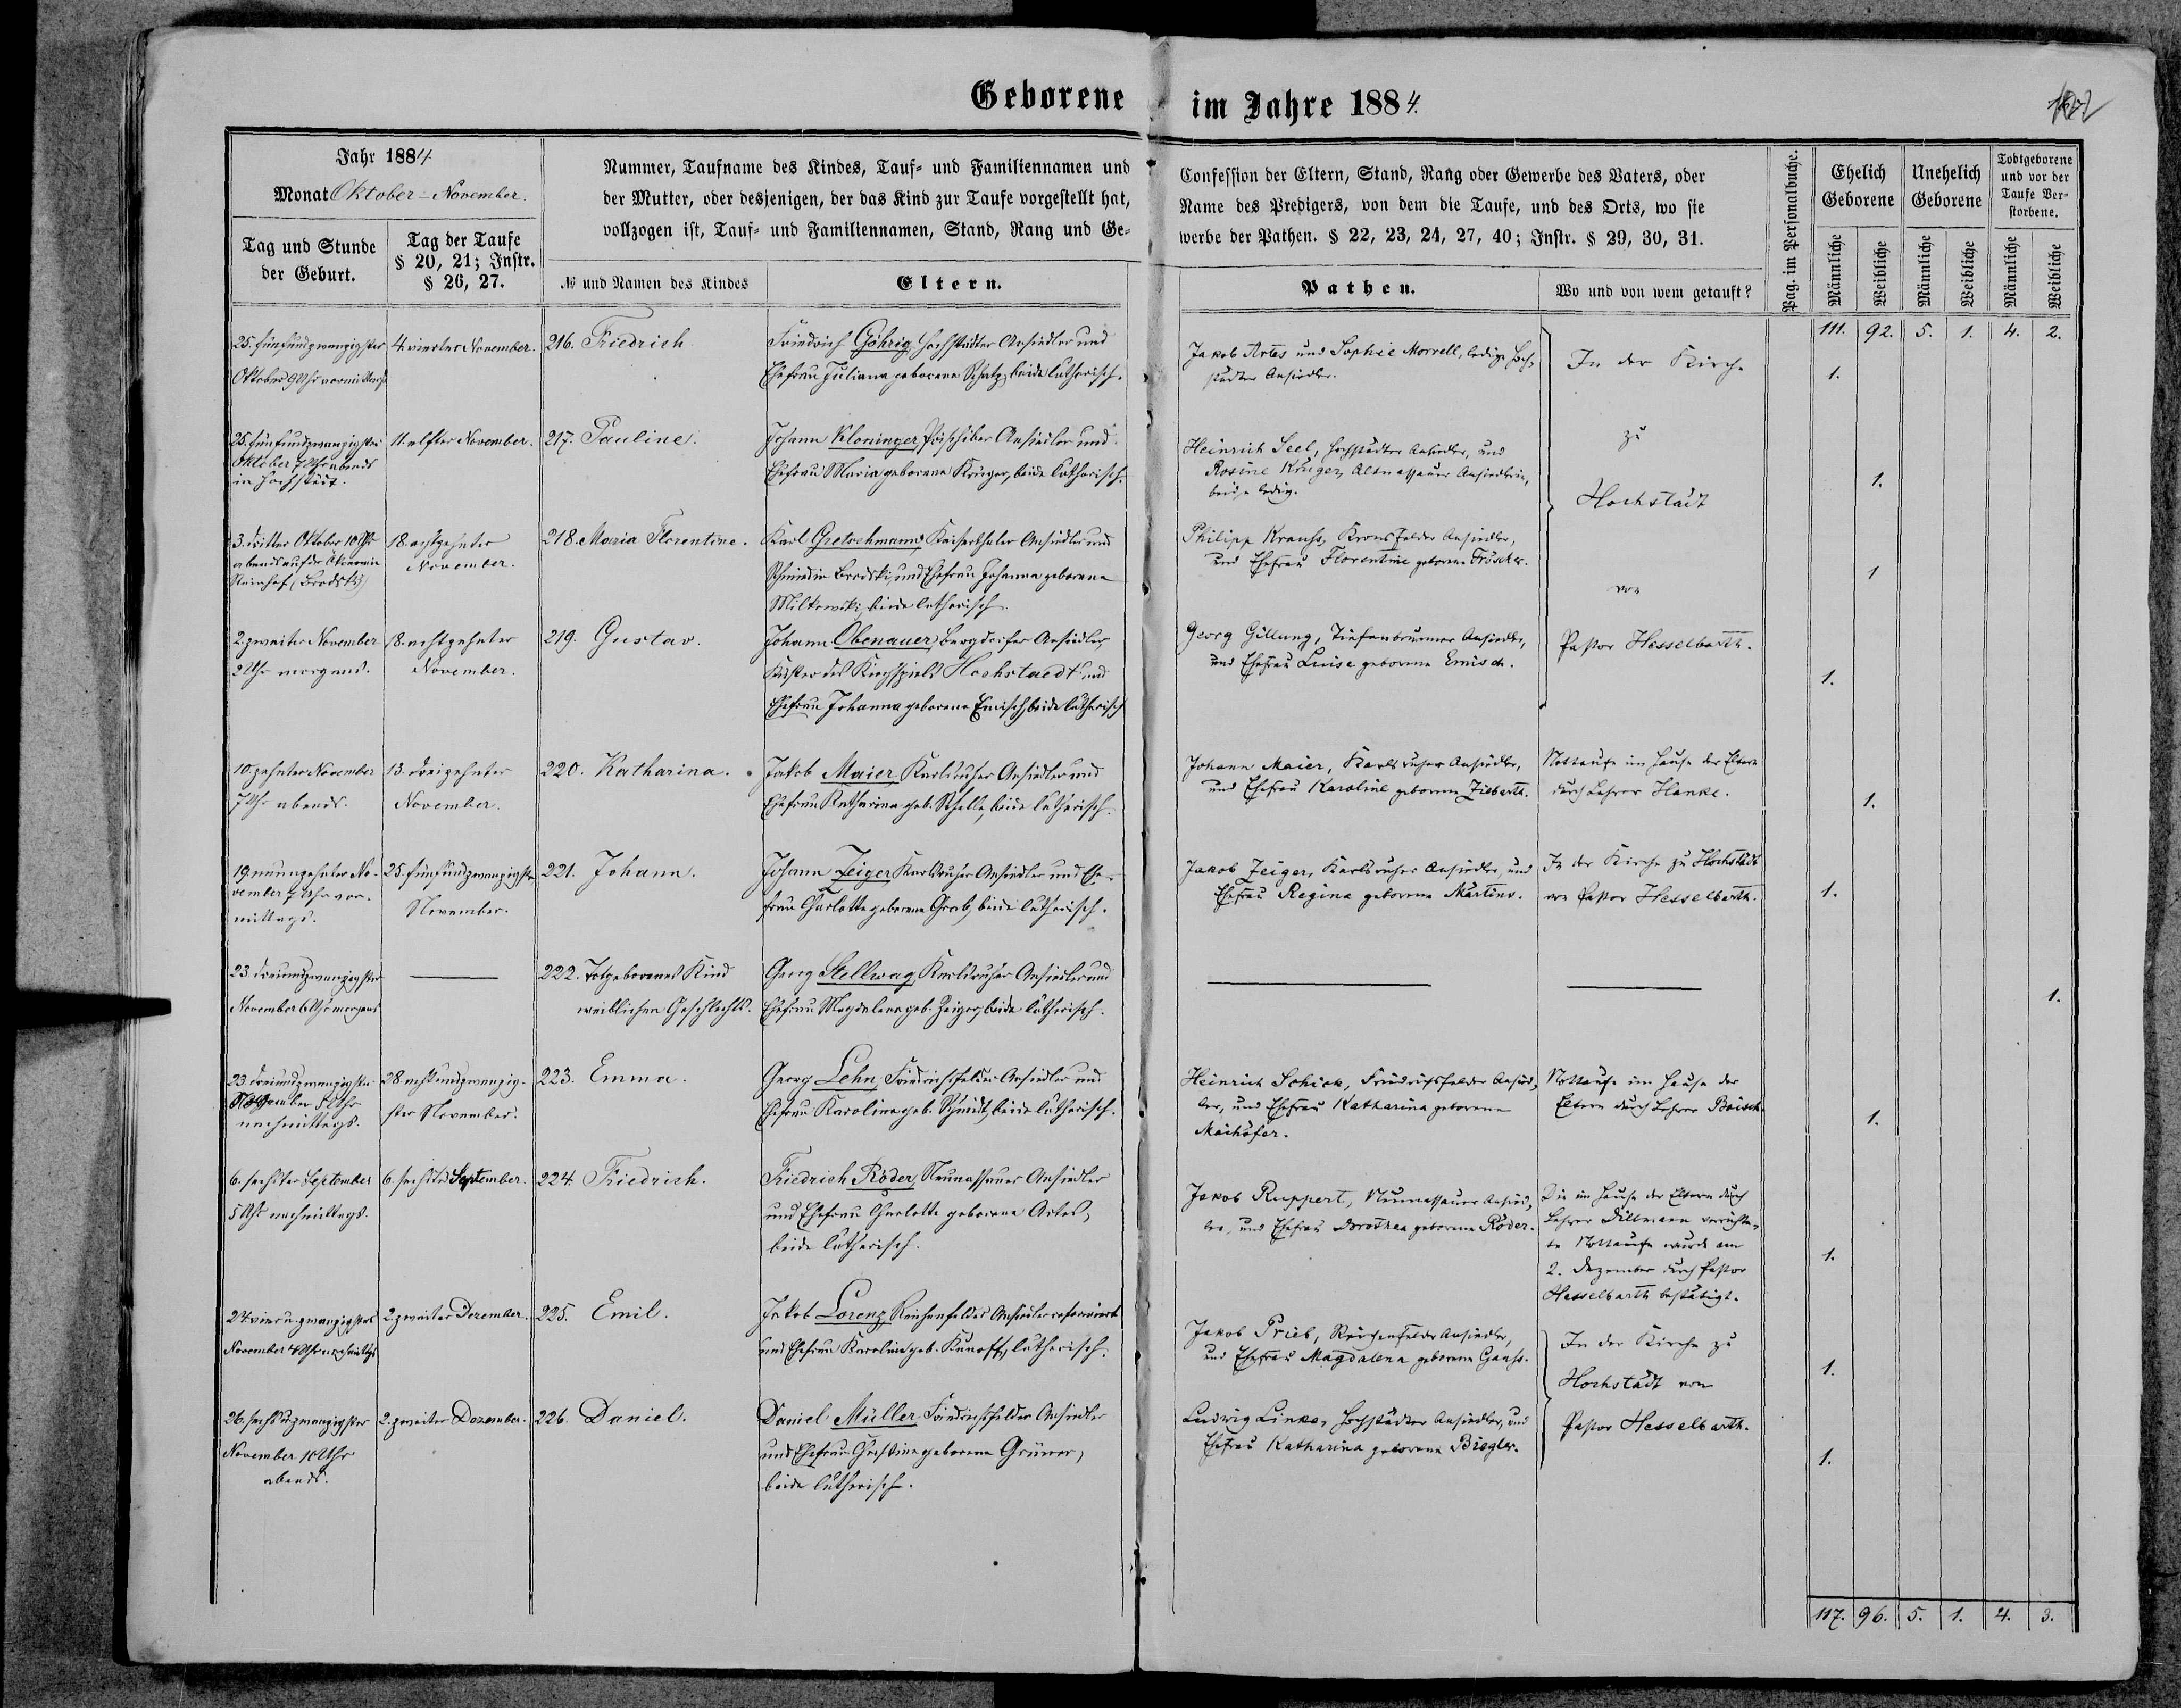 Geborene im Jahre 1884.
Jahr 1884
Monat Oktober - November.
Tag und Stunde der Geburt.
Tag der Taufe § 20, 21; Instr. § 26, 27.
Nummer, Taufname des Kindes, Tauf- und Familiennamen und
der Mutter, oder desjenigen, der das Kind zur Taufe vorgestellt hat,
vollzogen ist, Tauf- und Familiennamen, Stand, Rang und Ge-
№ und Namen des Kindes
Eltern.
Confession der Eltern, Stand, Rang oder Gewerbe des Vaters, oder
Name des Predigers, von dem die Taufe, und des Orts, wo sie
werbe der Pathen. § 22, 23, 24, 27, 40; Instr. § 29, 30, 31.
Pathen.
Wo und von wem getauft?
Pag. im Personalbuche.
Ehelich Geborene
Unehelich Geborene
Todtgeborene und vor der Taufe Verstorbene.
Männliche
Weibliche
Männliche
Weibliche
Männliche
Weibliche
111. 92. 5. 1. 4. 2.
25. fünfundzwanzigster
Oktober 9 Uhr vormittags
4. vierter November.
216. Friedrich
Friedrich Göhrig, Hochstädter Ansiedler und
Ehefrau Juliana geborene Schatz, beide lutherisch.
Jakob Artes und Sophie Morrell, ledige Hoch-
städter Ansiedler.
In der Kirche
1.
25. fünfundzwanzigster
Oktober 7 Uhr abends
in Hochstädt.
11. elfter November.
217. Pauline.
Johann Kloninger, Prischiber Ansiedler und
Ehefrau Maria geborene Krüger, beide lutherisch.
Heinrich Seel, Hochstädter Ansiedler, und
Rosine Krüger, Altnassauer Ansiedlerin,
beide ledig.
zu
Hochstädt
1.
3. dritter Oktober 10 Uhr
abends auf der Ökonomie
Steinhof (Brodsky)
18. achtzehnter
November.
218. Maria Florentine.
Karl Gretschmann, Kaiserthaler Ansiedler und
Schmied in Brodski, und Ehefrau Johanna geborene
Milkowski, beide lutherisch.
Philipp Krauhs, Kronsfelder Ansiedler,
und Ehefrau Florentine geborene Fröscher.
von
1
2. zweiter November
2 Uhr morgens.
18. achtzehnter
November.
219. Gustav.
Johann Obenauer, Bergdorfer Ansiedler,
Küster des Kirchspiels Hochstaedt und
Ehefrau Johanna geborene Emisch, beide lutherisch
Georg Gillung, Tiefenbrunner Ansiedler,
und Ehefrau Luise geborene Emisch.
Pastor Hesselbarth.
1.
10. zehnter November
7 Uhr abends.
13. dreizehnter
November.
220. Katharina.
Jakob Maier, Karlsruher Ansiedler und
Ehefrau Katharina geb. Schelle, beide lutherisch.
Johann Maier, Karlsruher Ansiedler,
und Ehefrau Karoline geborene Zilbarth.
Nottaufe im Hause der Eltern
durch Lehrer Hanke.
1.
19. neunzehnter No-
vember 7 Uhr vor-
mittags.
25. fünfundzwanzigster
November.
221. Johann.
Johann Zeiger, Karlsruher Ansiedler und Ehe-
frau Charlotte geborene Grob, beide lutherisch.
Jakob Zeiger, Karlsruher Ansiedler, und
Ehefrau Regina geborene Martins.
In der Kirche zu Hochstädt
von Pastor Hesselbarth.
1.
23. dreiundzwanzigster
November 6 Uhr morgens
222. Totgeborenes Kind
weiblichen Geschlechts.
Georg Stellwag, Karlsruher Ansiedler und
Ehefrau Magdalena geb. Zeiger, beide lutherisch.
1.
23. dreiundzwanzigster
November 5 Uhr
nachmittags.
28. achtundzwanzig-
ster November.
223. Emma.
Georg Lehn, Friedrichsfelder Ansiedler und
Ehefrau Karoline geb. Schmidt, beide lutherisch.
Heinrich Schick, Friedrichsfelder Ansied-
ler, und Ehefrau Katharina geborene
Maihöfer.
Nottaufe im Hause der
Eltern durch Lehrer Boisch.
1.
6. sechster September
5 Uhr nachmittags.
6. sechster September.
224. Friedrich.
Friedrich Röder, Neunassauer Ansiedler
und Ehefrau Charlotte geborene Artes,
beide lutherisch.
Jakob Ruppert, Neunassauer Ansied-
ler, und Ehefrau Dorothea geborene Röder.
Die im Hause der Eltern durch
Lehrer Dillmann verrichte-
te Nottaufe wurde am
2. Dezember durch Pastor
Hesselbarth bestätigt.
1.
24. vierundzwanzigster
November 4 Uhr nachmittags
2. zweiter Dezember.
225. Emil.
Jakob Lorenz, Reichenfelder Ansiedler reformiert
und Ehefrau Karoline geb. Kunoff, lutherisch.
Jakob Prieb, Reichenfelder Ansiedler,
und Ehefrau Magdalena geborene Ganhs.
In der Kirche zu
Hochstädt von
1.
26. sechsundzwanzigster
November 10 Uhr
abends.
2. zweiter Dezember.
226. Daniel.
Daniel Müller, Friedrichsfelder Ansiedler
und Ehefrau Christina geborene Grüner,
beide lutherisch.
Ludwig Linke, Hochstädter Ansiedler, und
Ehefrau Katharina geborene Biegler.
Pastor Hesselbarth.
1.
117. 96. 5. 1. 4. 3.